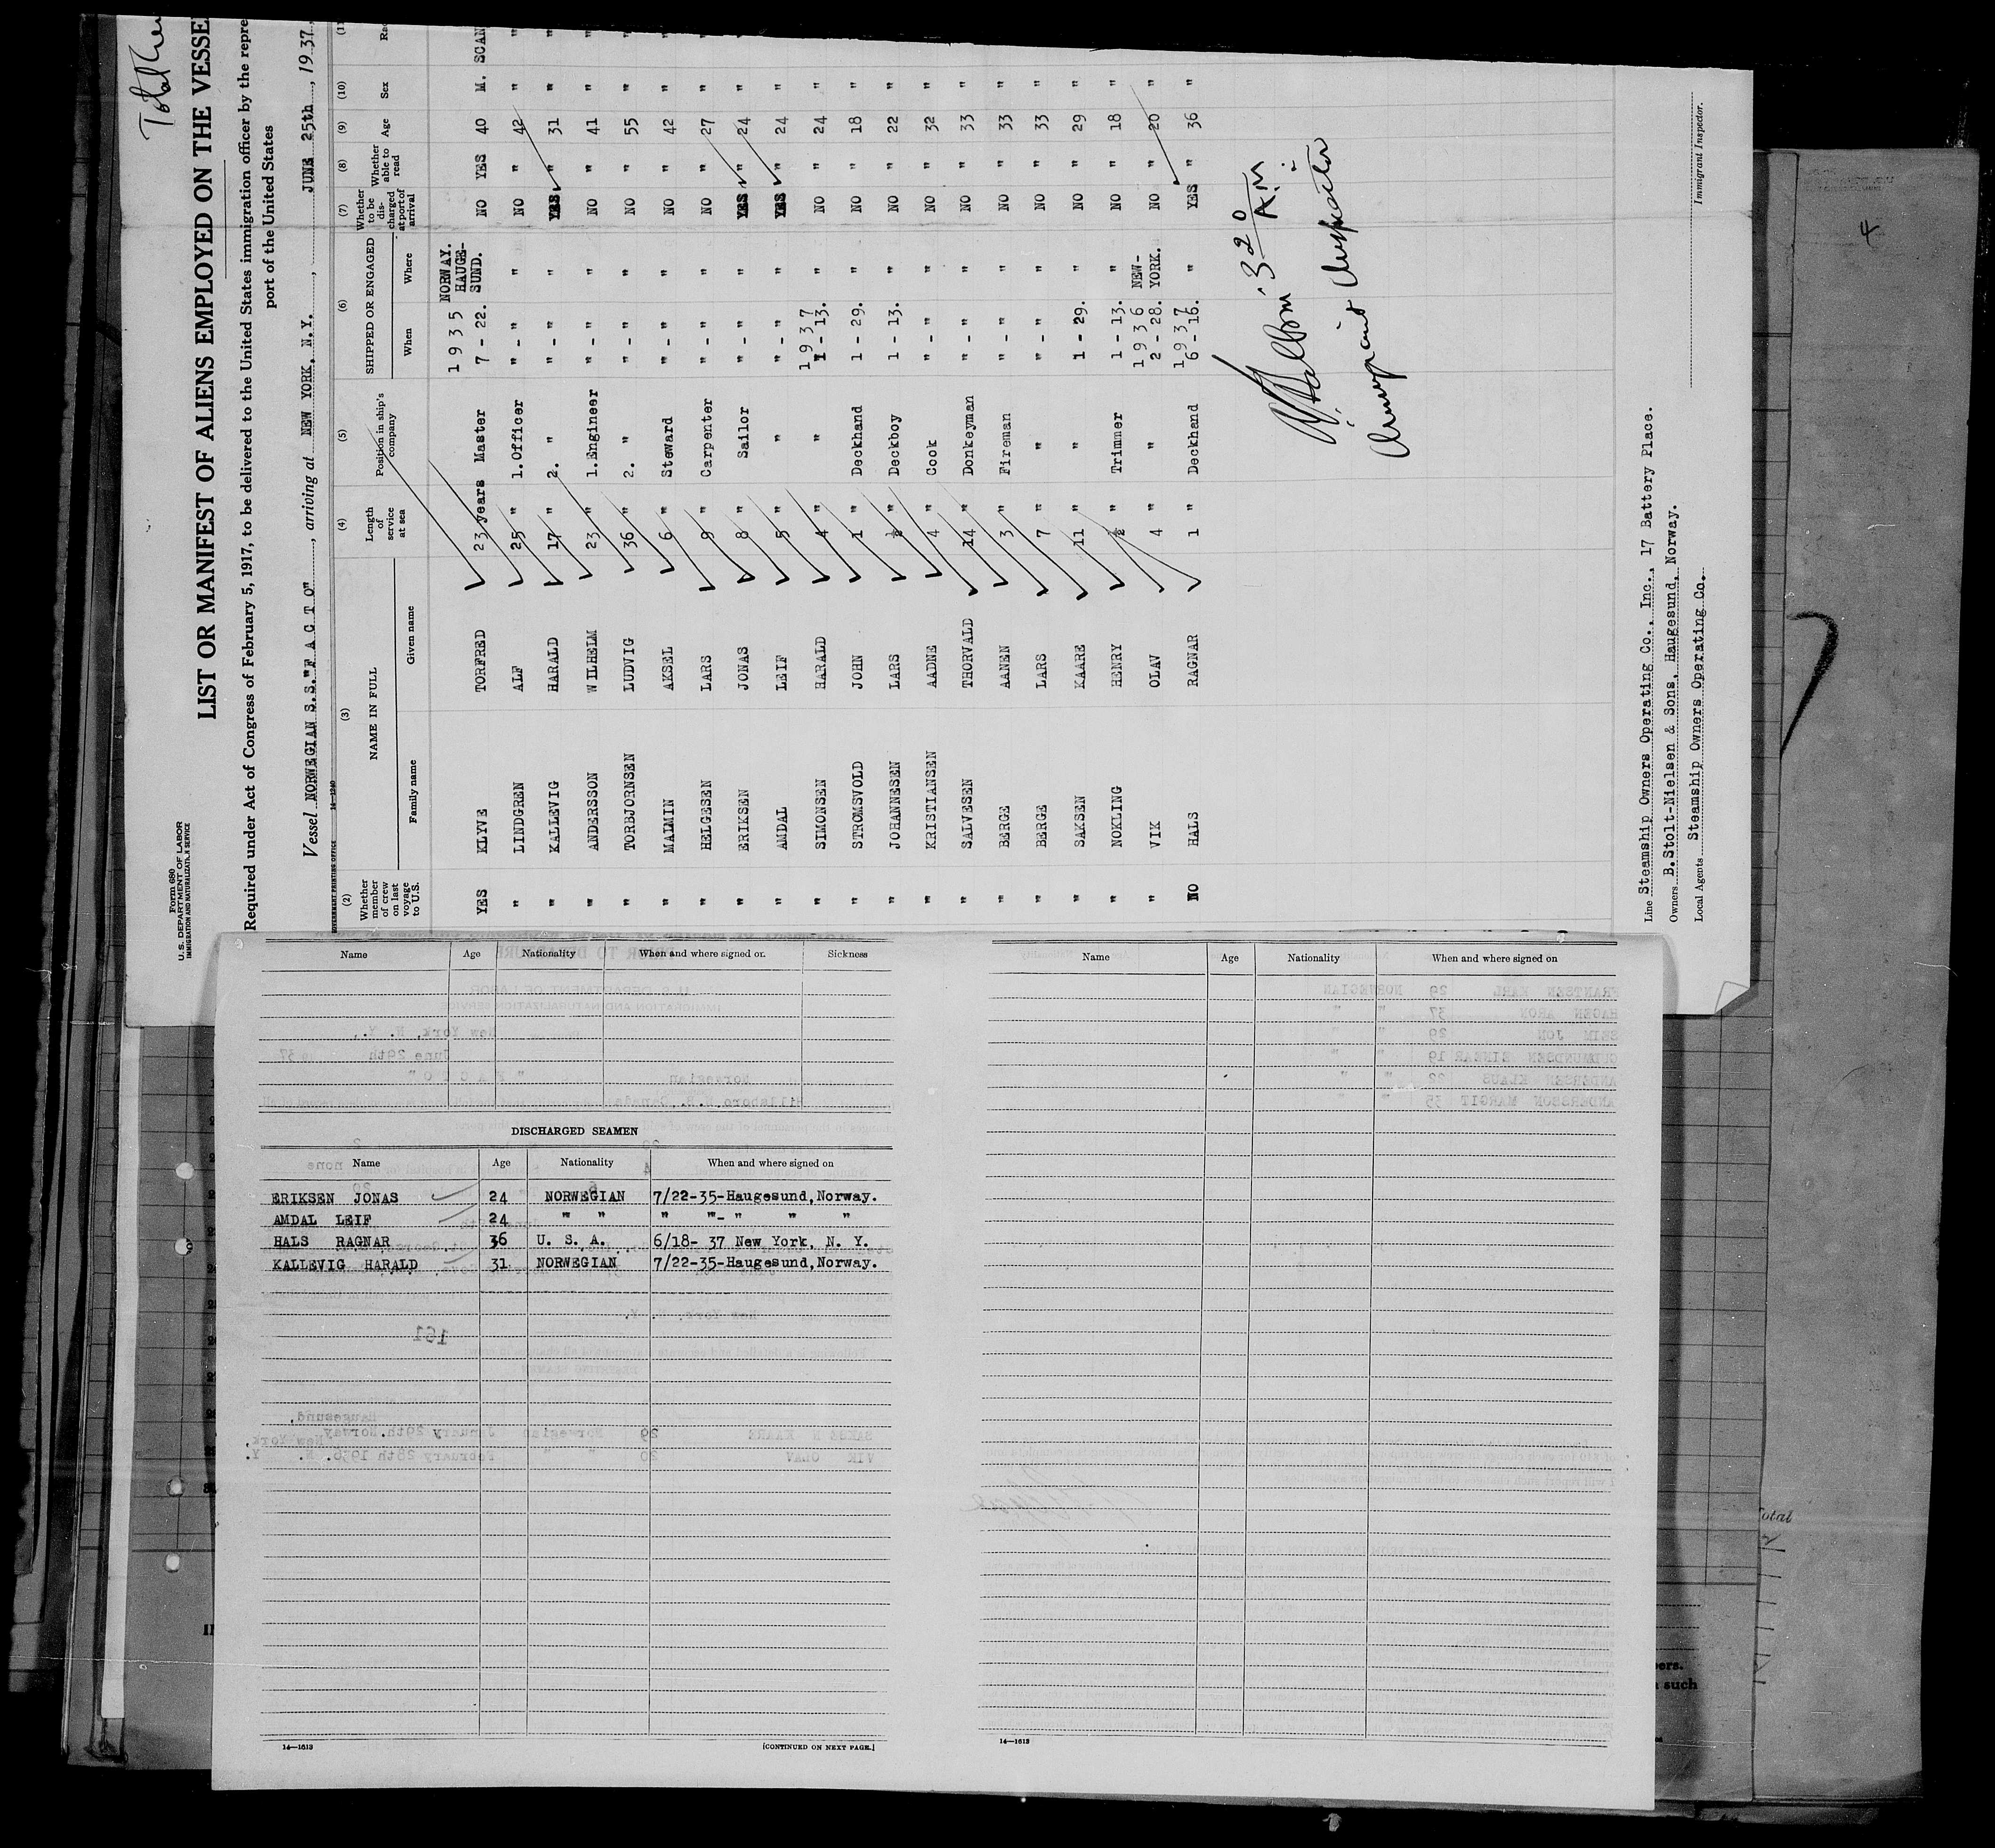 Total
Form 680
U. S. DEPARTMENT OF LABOR
IMMIGRATION AND NATURALIZATION SERVICE
LIST OR MANIFEST OF ALIENS EMPLOYED ON THE VESSE
Required under Act of Congress of February 5, 1917, to be delivered to the United States immigration officer by the repre
port of the United States
Vessel NORWEGIAN S.S. "F A C T O", arriving at NEW YORK, N.Y., JUNE 25th, 1937
GOVERNMENT PRINTING OFFICE 14-1240
(2) (3) (4) (5) (6) (7) (8) (9) (10) (1
Whether member of crew on last voyage to U.S. NAME IN FULL Family name Given name Length of service at sea Position in ship's company SHIPPED OR ENGAGED When Where Whether to be discharged at port of arrival Whether able to read Age Sex Ra
1935 NORWAY. HAUGE-
YES KLYVE TORFRED 23 years Master 7 - 22. SUND. NO YES 40 M. SCAN
" LINDGREN ALF 25 " 1.Officer " - " " NO " 42 " "
" KALLEVIG HARALD 17 " 2. " " - " " YES " 31 " "
" ANDERSSON WILHELM 23 " 1.Engineer " - " " NO " 41 " "
" TORBJORNSEN LUDVIG 36 " 2. " " - " " NO " 55 " "
" MALMIN AKSEL 6 " Steward " - " " NO " 42 " "
" HELGESEN LARS 9 " Carpenter " - " " NO " 27 " "
" ERIKSEN JONAS 8 " Sailor " - " " YES " 24 " "
" AMDAL LEIF 5 " " " - " " YES " 24 " "
1937
" SIMONSEN HARALD 4 " " 1 - 13. " NO " 24 " "
" STROMSVOLD JOHN 1 " Deckhand 1 - 29. " NO " 18 " "
" JOHANNESEN LARS ½ " Deckboy 1 - 13. " NO " 22 " "
" KRISTIANSEN AADNE 4 " Cook " - " " NO " 32 " "
" SALVESEN THORVALD 14 " Donkeyman " - " " NO " 33 " "
" BERGE AANEN 3 " Fireman " - " " NO " 33 " "
" BERGE LARS 7 " " " - " " NO " 33 " "
" SAKSEN KAARE 11 " " 1 - 29. " NO " 29 " "
" NOKLING HENRY ½ " Trimmer 1 - 13. " NO " 18 " "
1936 NEW-
" VIK OLAV 4 " " 2 - 28. YORK. NO " 20 " "
1937
NO HALS RAGNAR 1 " Deckhand 6 - 16. " YES " 36 "
3 20 AM
Immigrant Inspector
Line Steamship Owners Operating Co., Inc., 17 Battery Place.
Owners B.Stolt-Nielsen & Sons, Haugesund, Norway.
Local Agents Steamship Owners Operating Co.
Immigrant Inspector.
4
Name Age Nationality When and where signed on Sickness
DISCHARGED SEAMEN
Name Age Nationality When and where signed on
ERIKSEN JONAS 24 NORWEGIAN 7/22-35-Haugesund,Norway.
AMDAL LEIF 24 " " " "- " " "
HALS RAGNAR 36 U. S. A. 6/18- 37 New York, N. Y.
KALLEVIG HARALD 31 NORWEGIAN 7/22-35-Haugesund,Norway.
14—1613 [CONTINUED ON NEXT PAGE.]
Name Age Nationality When and where signed on
14—1613
otal
ers.
such